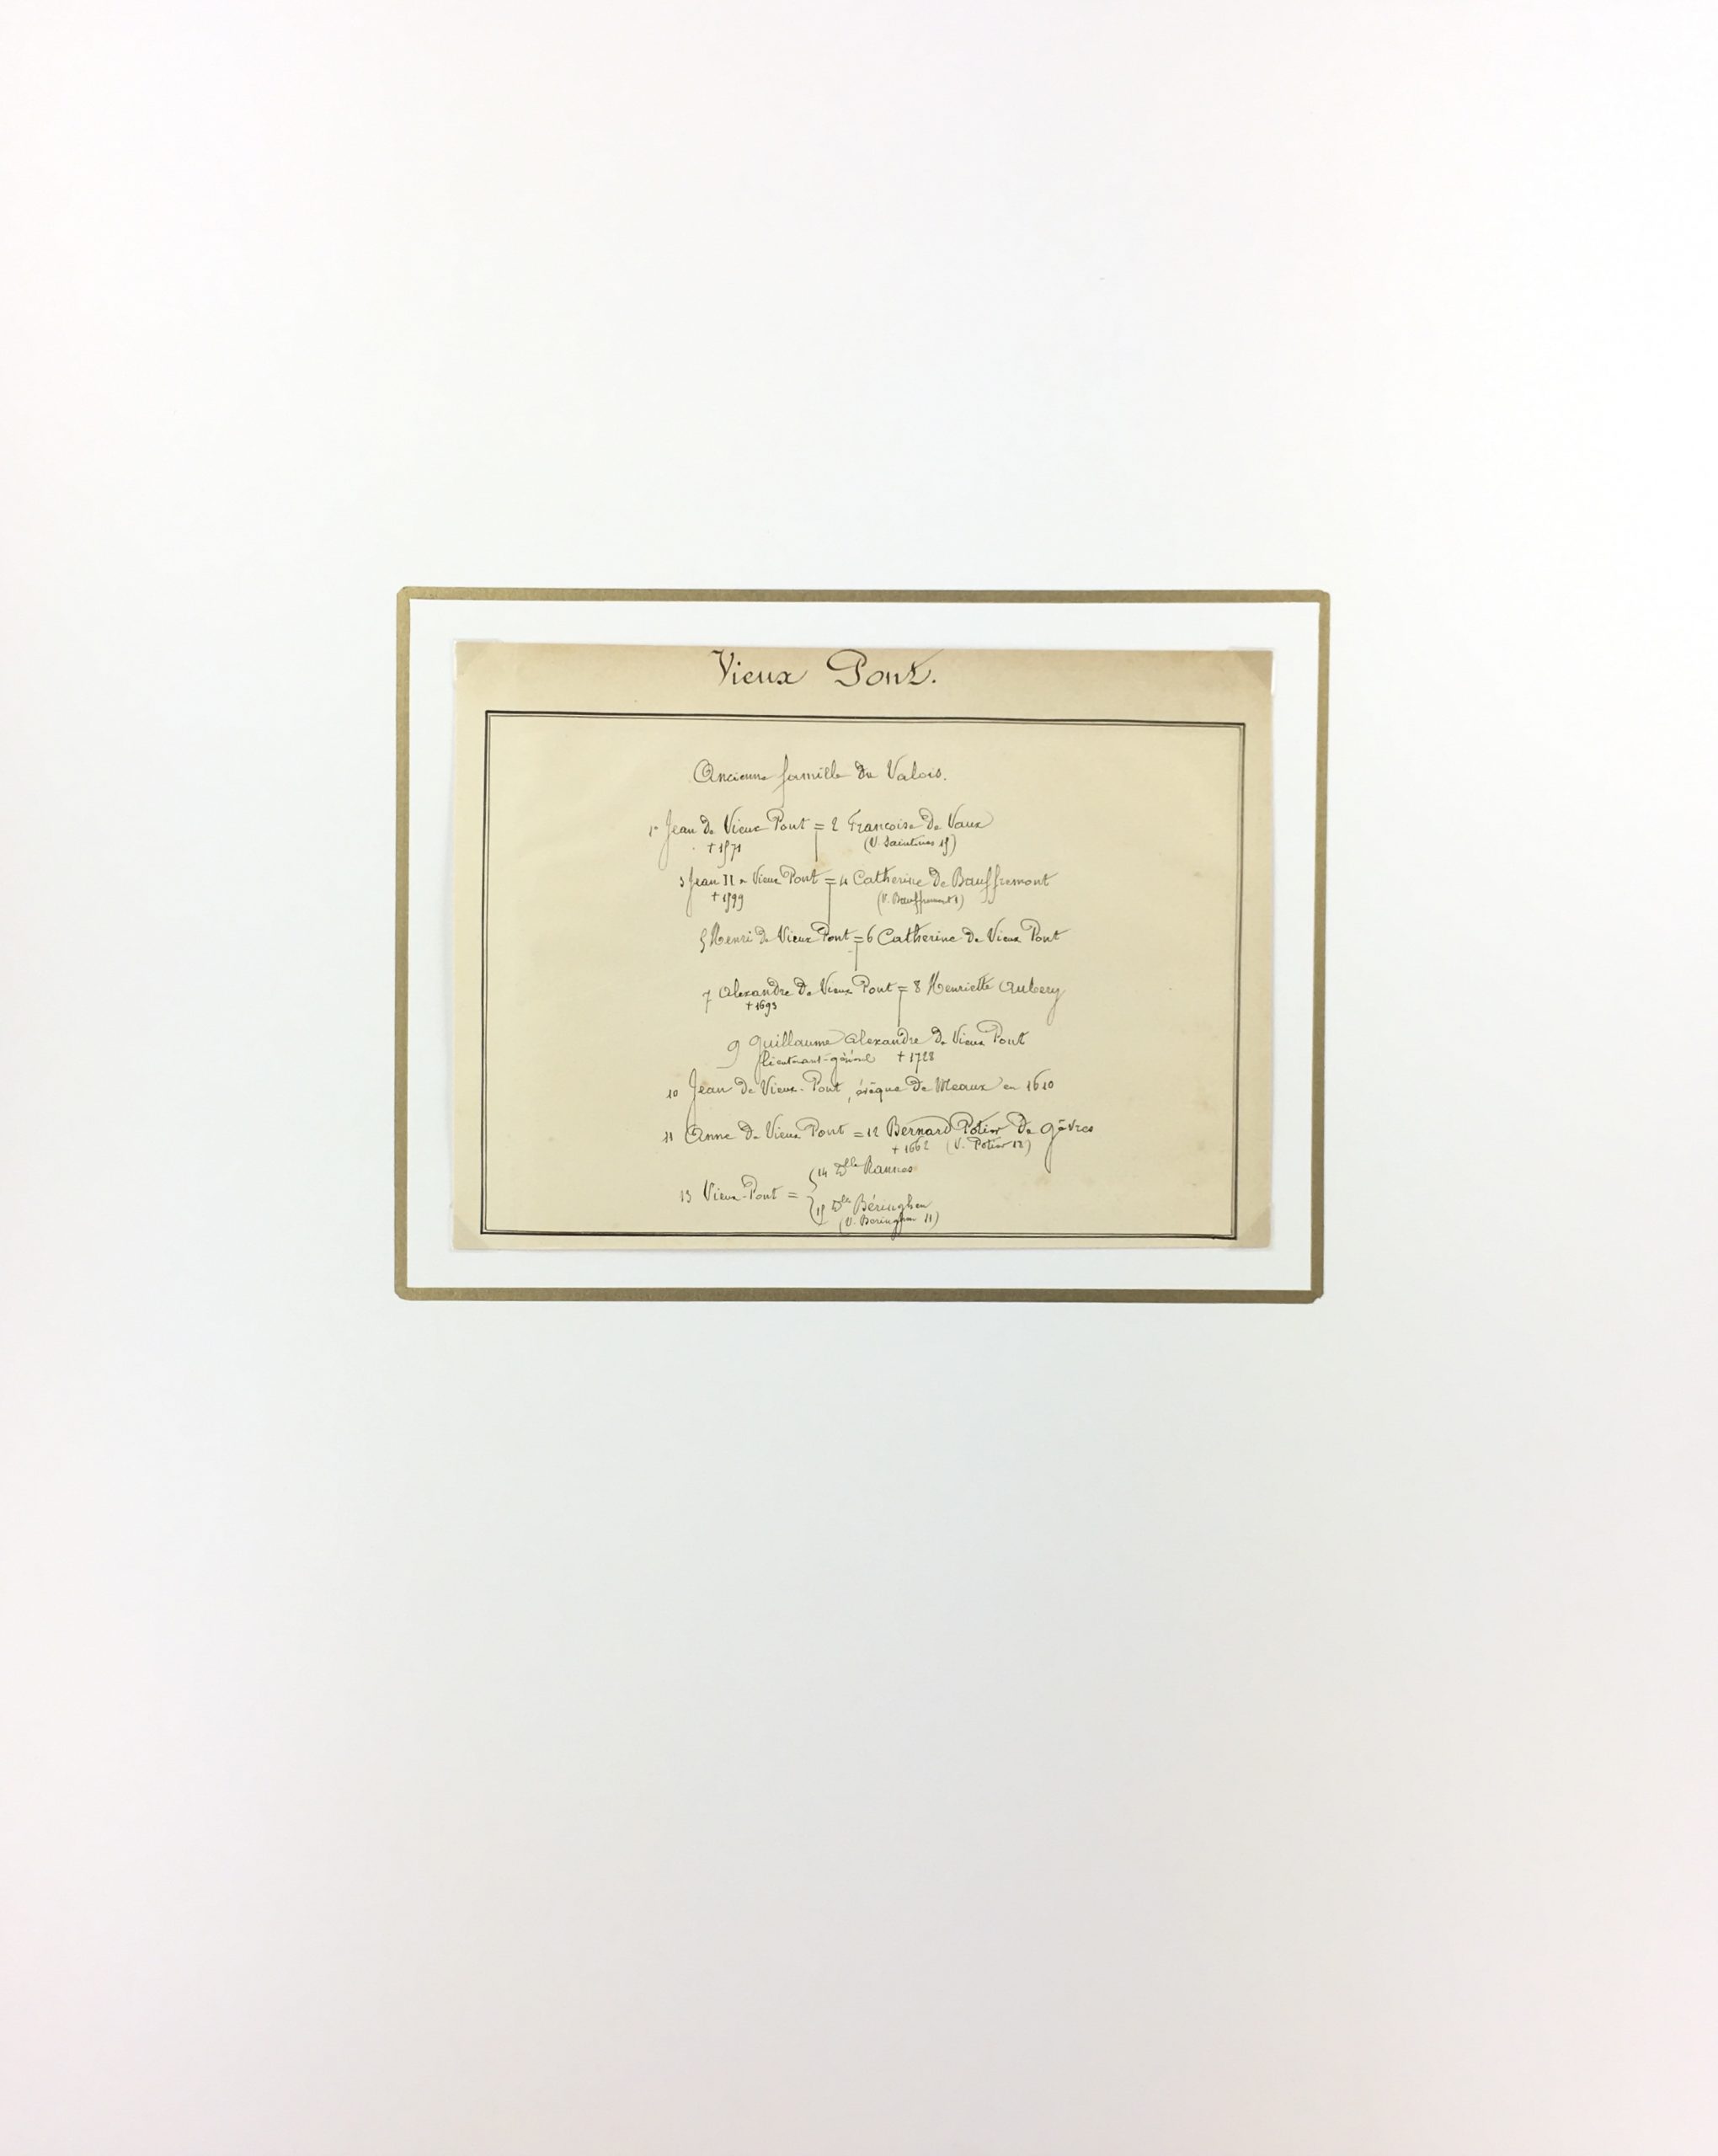 Vieux Pont.
Ancienne famille du Valois.
1 Jean de Vieux Pont = 2 Françoise de Vaux
+ 1571 (V. Saintines 15)
3 Jean II de Vieux Pont = 4 Catherine de Bauffremont
+ 1599 (V. Bauffremont 1)
5 Henri de Vieux Pont = 6 Catherine de Vieux Pont
7 Alexandre de Vieux Pont = 8 Henriette Aubery
+ 1693
9 Guillaume Alexandre de Vieux Pont
lieutenant-général + 1728
10 Jean de Vieux-Pont, évêque de Meaux en 1610
11 Anne de Vieux Pont = 12 Bernard Potier de Gêvres
+ 1662 (V. Potier 12)
14 Dlle Rannes
13 Vieux-Pont =
15 Dlle Béringhen
(V. Beringhen 11)